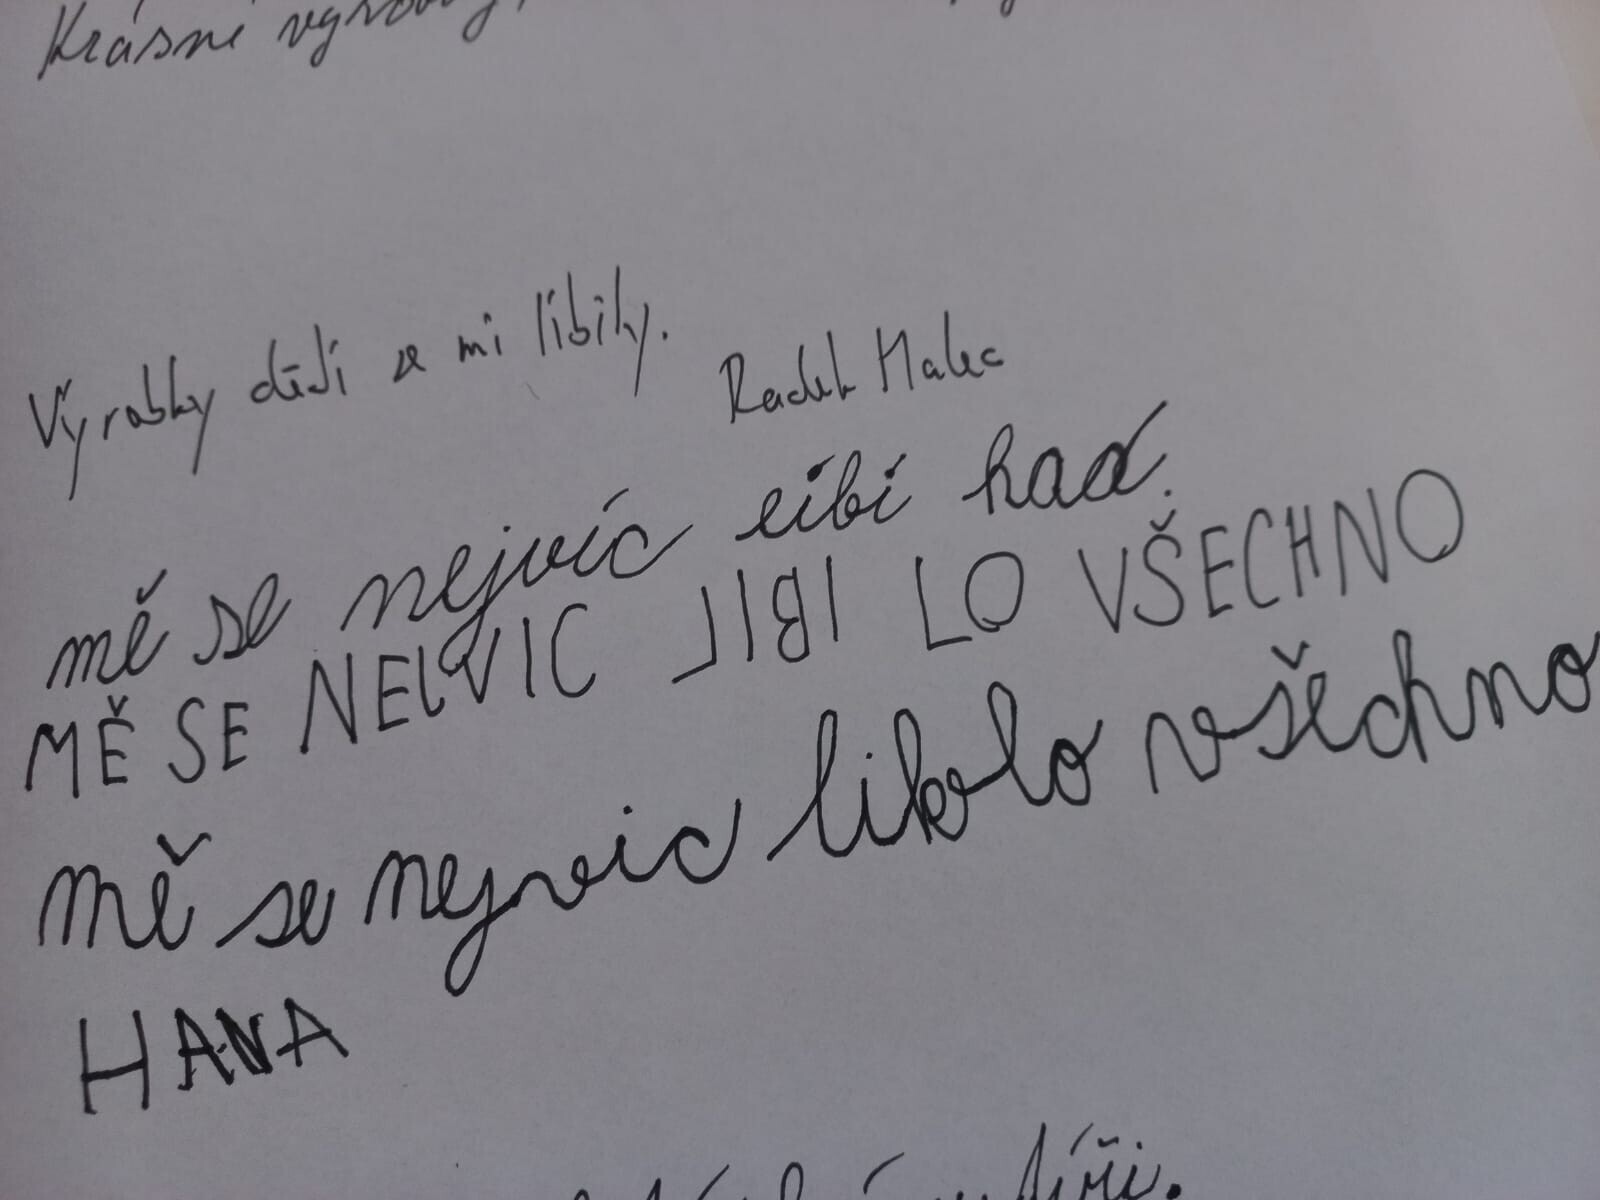 Krásné výrobky,
Výrobky dětí se mi líbily. Radek Malec
mě se nejvíc líbí had.
MĚ SE NEJVIC JIBI LO VŠECHNO
mě se nejvic libilo všechno
HANA